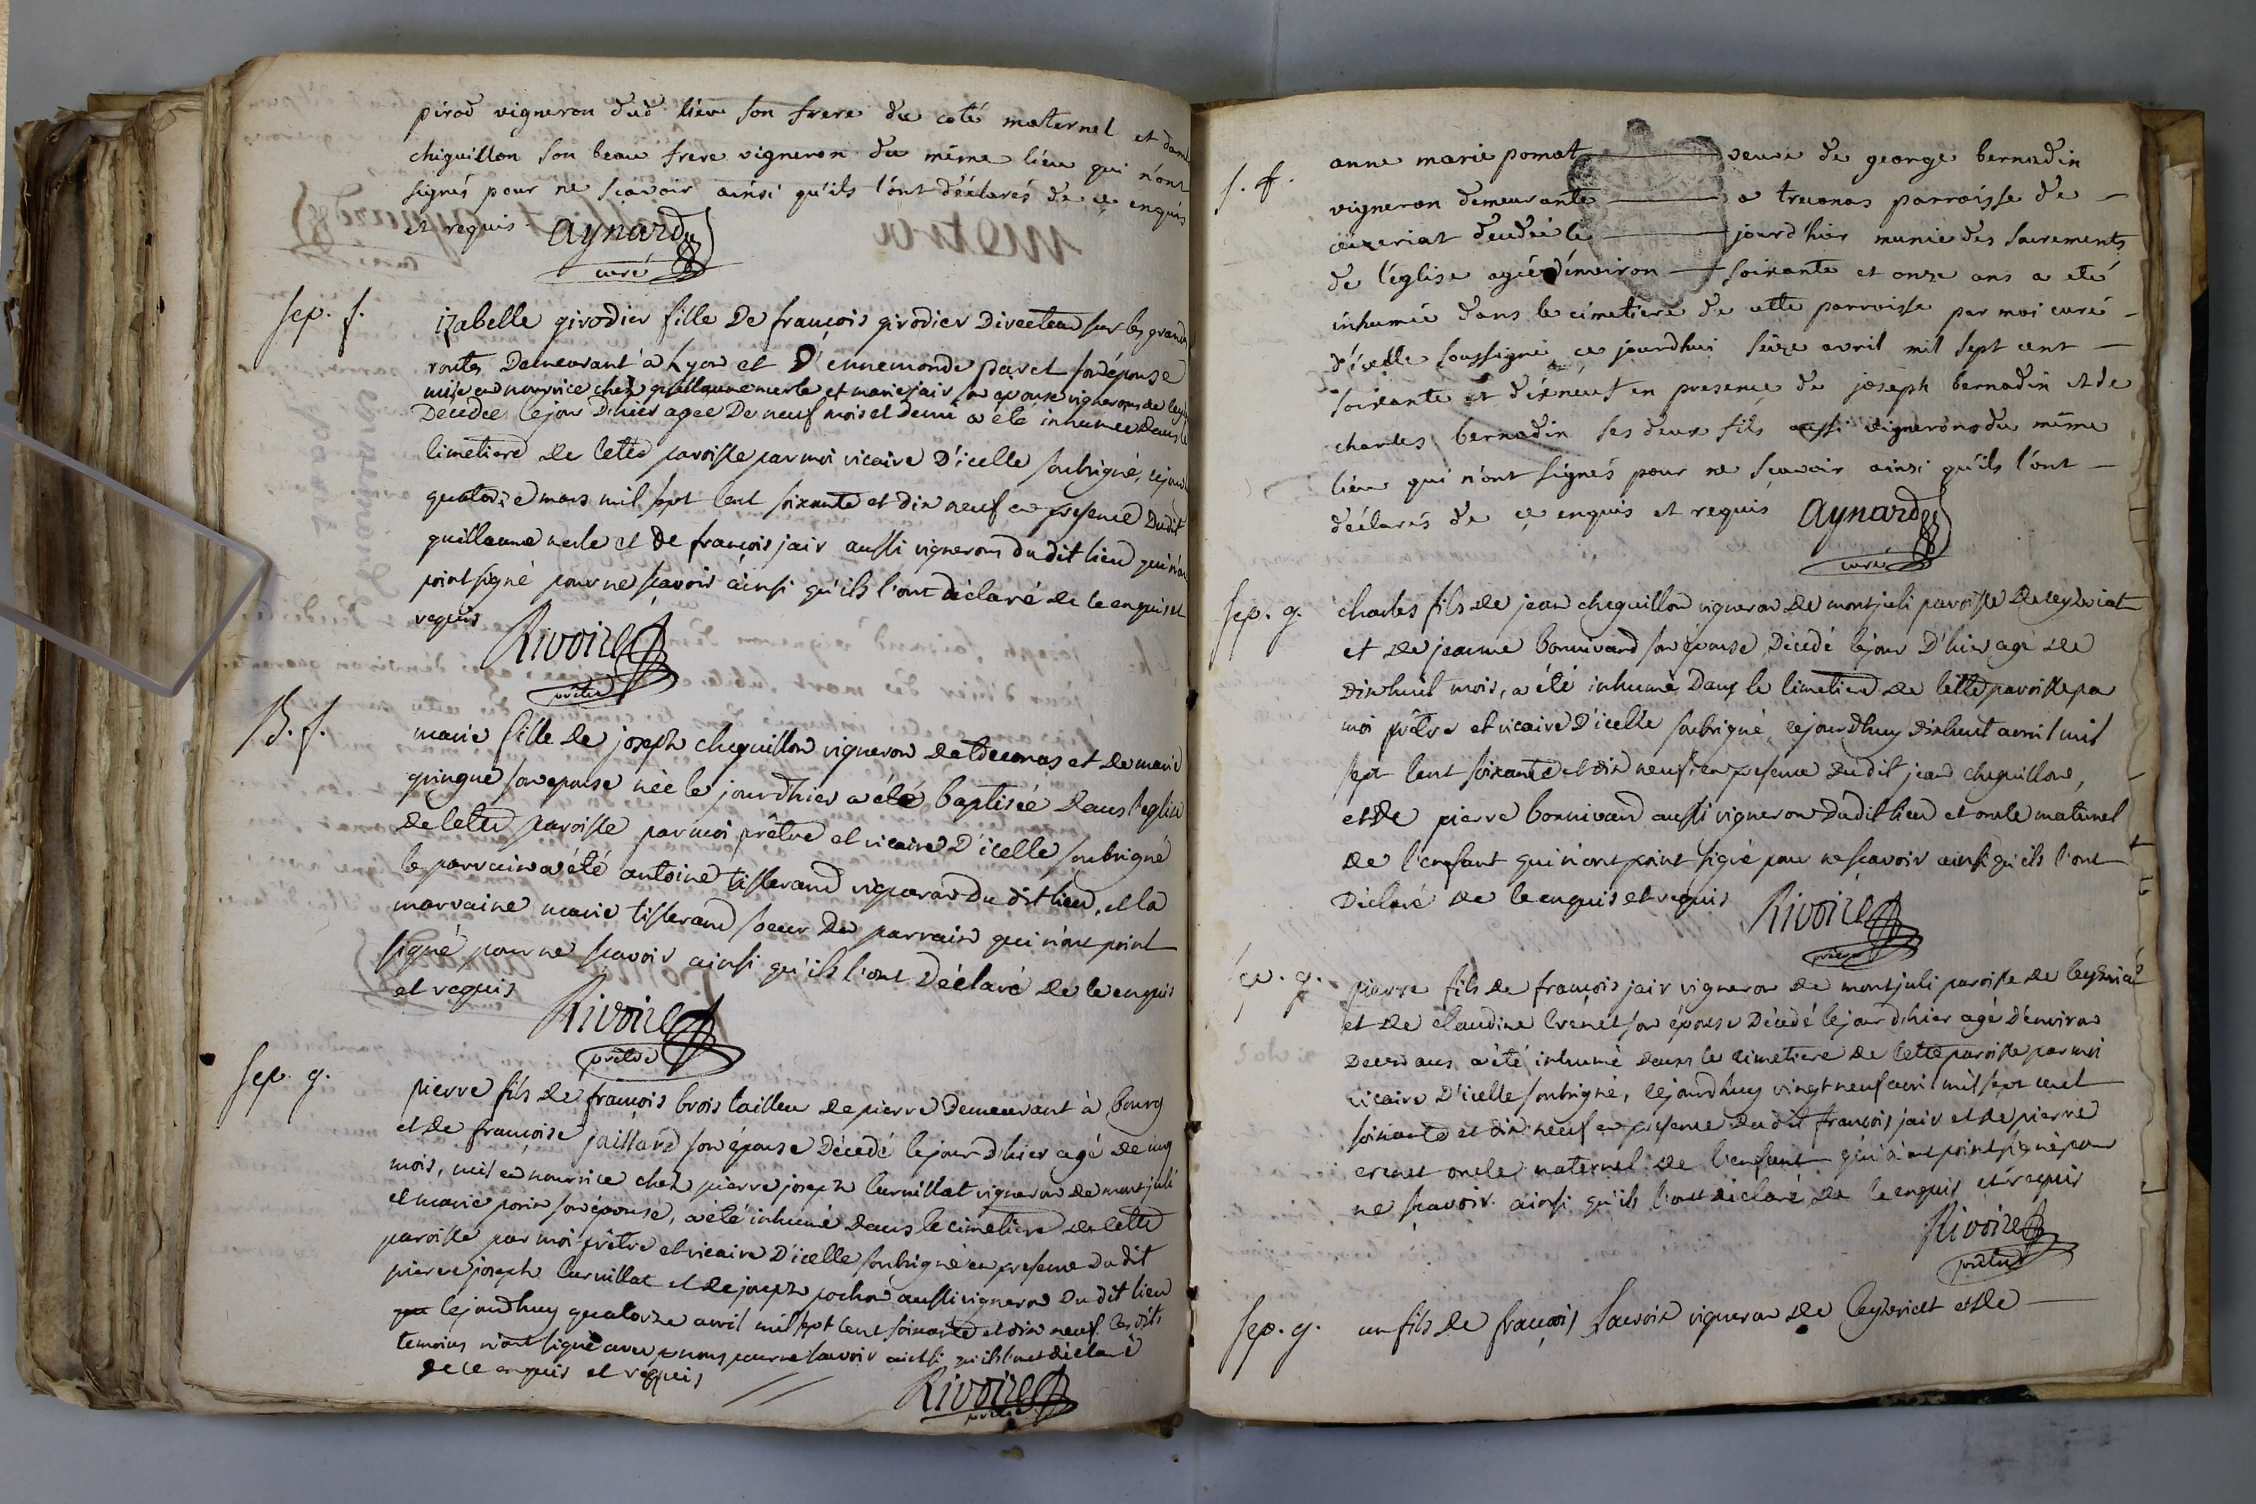 pirod vigneron dud. lieu son frere du coté maternel et
chiguillon son beau frere vigneron du même lieu qui n'ont
signés pour ne scavoir ainsi qu'ils l'ont déclarés de ce enquis
et requis. aynard
curé
sep. f.
izabelle girodier fille De françois girodier Directeur sur les grandes
routes Demeurant a Lyon et D'ennemonde paret son épouse
mise en nourrice chez guillaume merle et marie jair son epouse vignerons de
Decedée le jour D'hier agée De neuf mois et demi a été inhumée dans le
cimetiere de cette paroisse par moi vicaire D'icelle soubsigné, ce jour
quatorze mars mil sept cent soixante et dix neuf en presence Dudit
guillaume merle et De françois jair aussi vignerons du dit lieu qui n'ont
point signé pour ne scavoir ainsi qu'ils l'ont déclaré de ce enquis et
requis Rivoire
prêtre
B. f.
marie fille de joseph cheguillon vigneron de treconas et de marie
guingue son epouse née le jour d'hier a été baptisée dans l'eglise
de cette paroisse par moi prêtre et vicaire D'icelle soubsigné
le parrain a été antoine tisserand vigneron du dit lieu, et la
marraine marie tisserand soeur du parrain qui n'ont point
signé pour ne scavoir ainsi qu'ils l'ont Déclaré de ce enquis
et requis Rivoire
prêtre
sep. g.
pierre fils de françois brois tailleur de pierre Demeurant à bourg
et de françoise jaillard son épouse Décédé le jour d'hier agé de cinq
mois, mis en nourrice chez pierre joseph curvillat vigneron de montjuli
et marie son épouse, a été inhumé dans le cimetiere de cette
paroisse par moi prêtre et vicaire D'icelle soubsigné en presence du dit
pierre joseph curvillat et de joseph pochon aussi vigneron du dit lieu
le jourdhuy quatorze avril mil sept cent soixante et dix neuf les dits
temoins n'ont signé avec nous pour ne scavoir ainsi qu'ils l'ont déclaré
de ce enquis et requis Rivoire
prêtre
s. f.
anne marie pomat veuve de george bernadin
vigneron demeurante a treconas parroisse de
ceizeriat decedée le jourd'hier munie des sacrements
de l'église agée d'environ soixante et onze ans a eté
inhumée dans le cimetiere de cette parroisse par moi curé
d'icelle soussigné ce jourdhui seize avril mil sept cent
soixante et dixneuf en presence de joseph bernadin et de
charles bernadin ses deux fils aussi vignerons du même
lieu qui n'ont signés pour ne scavoir ainsi qu'ils l'ont
déclarés de ce enquis et requis aynard
curé
sep. g.
charles fils de jean cheguillon vigneron de montjuli paroisse de ceyzeriat
et de jeanne bonnivard son épouse Décedé le jour D'hier agé de
dixhuit mois, a été inhumé Dans le cimetiere de cette paroisse par
moi prêtre et vicaire D'icelle soubsigné, cejourdhuy dixhuit avril mil
sept cent soixante et dix neuf, en presence dudit jean cheguillon,
et de pierre bonnivard aussi vigneron dudit lieu et oncle maternel
de l'enfant qui n'ont point signé pour ne scavoir ainsi qu'ils l'ont
Déclaré de ce enquis et requis Rivoire
prêtre
sep. g.
pierre fils de françois jair vigneron de montjuli paroisse de ceyzeriat
et de claudine crenet son épouse Décedé le jour d'hier agé d'environ
deux ans a été inhumé dans le cimetiere de cette paroisse par moi
vicaire D'icelle soubsigné, cejourdhuy vingt neuf avril mil sept cent
soixante et dix neuf en presence dudit françois jair et de pierre
crenet oncle maternel de l'enfant qui n'ont point signé pour
ne scavoir ainsi qu'ils l'ont déclaré de ce enquis et requis
Rivoire
prêtre
sep. g.
un fils de françois savoix vigneron de ceyzeriat et de